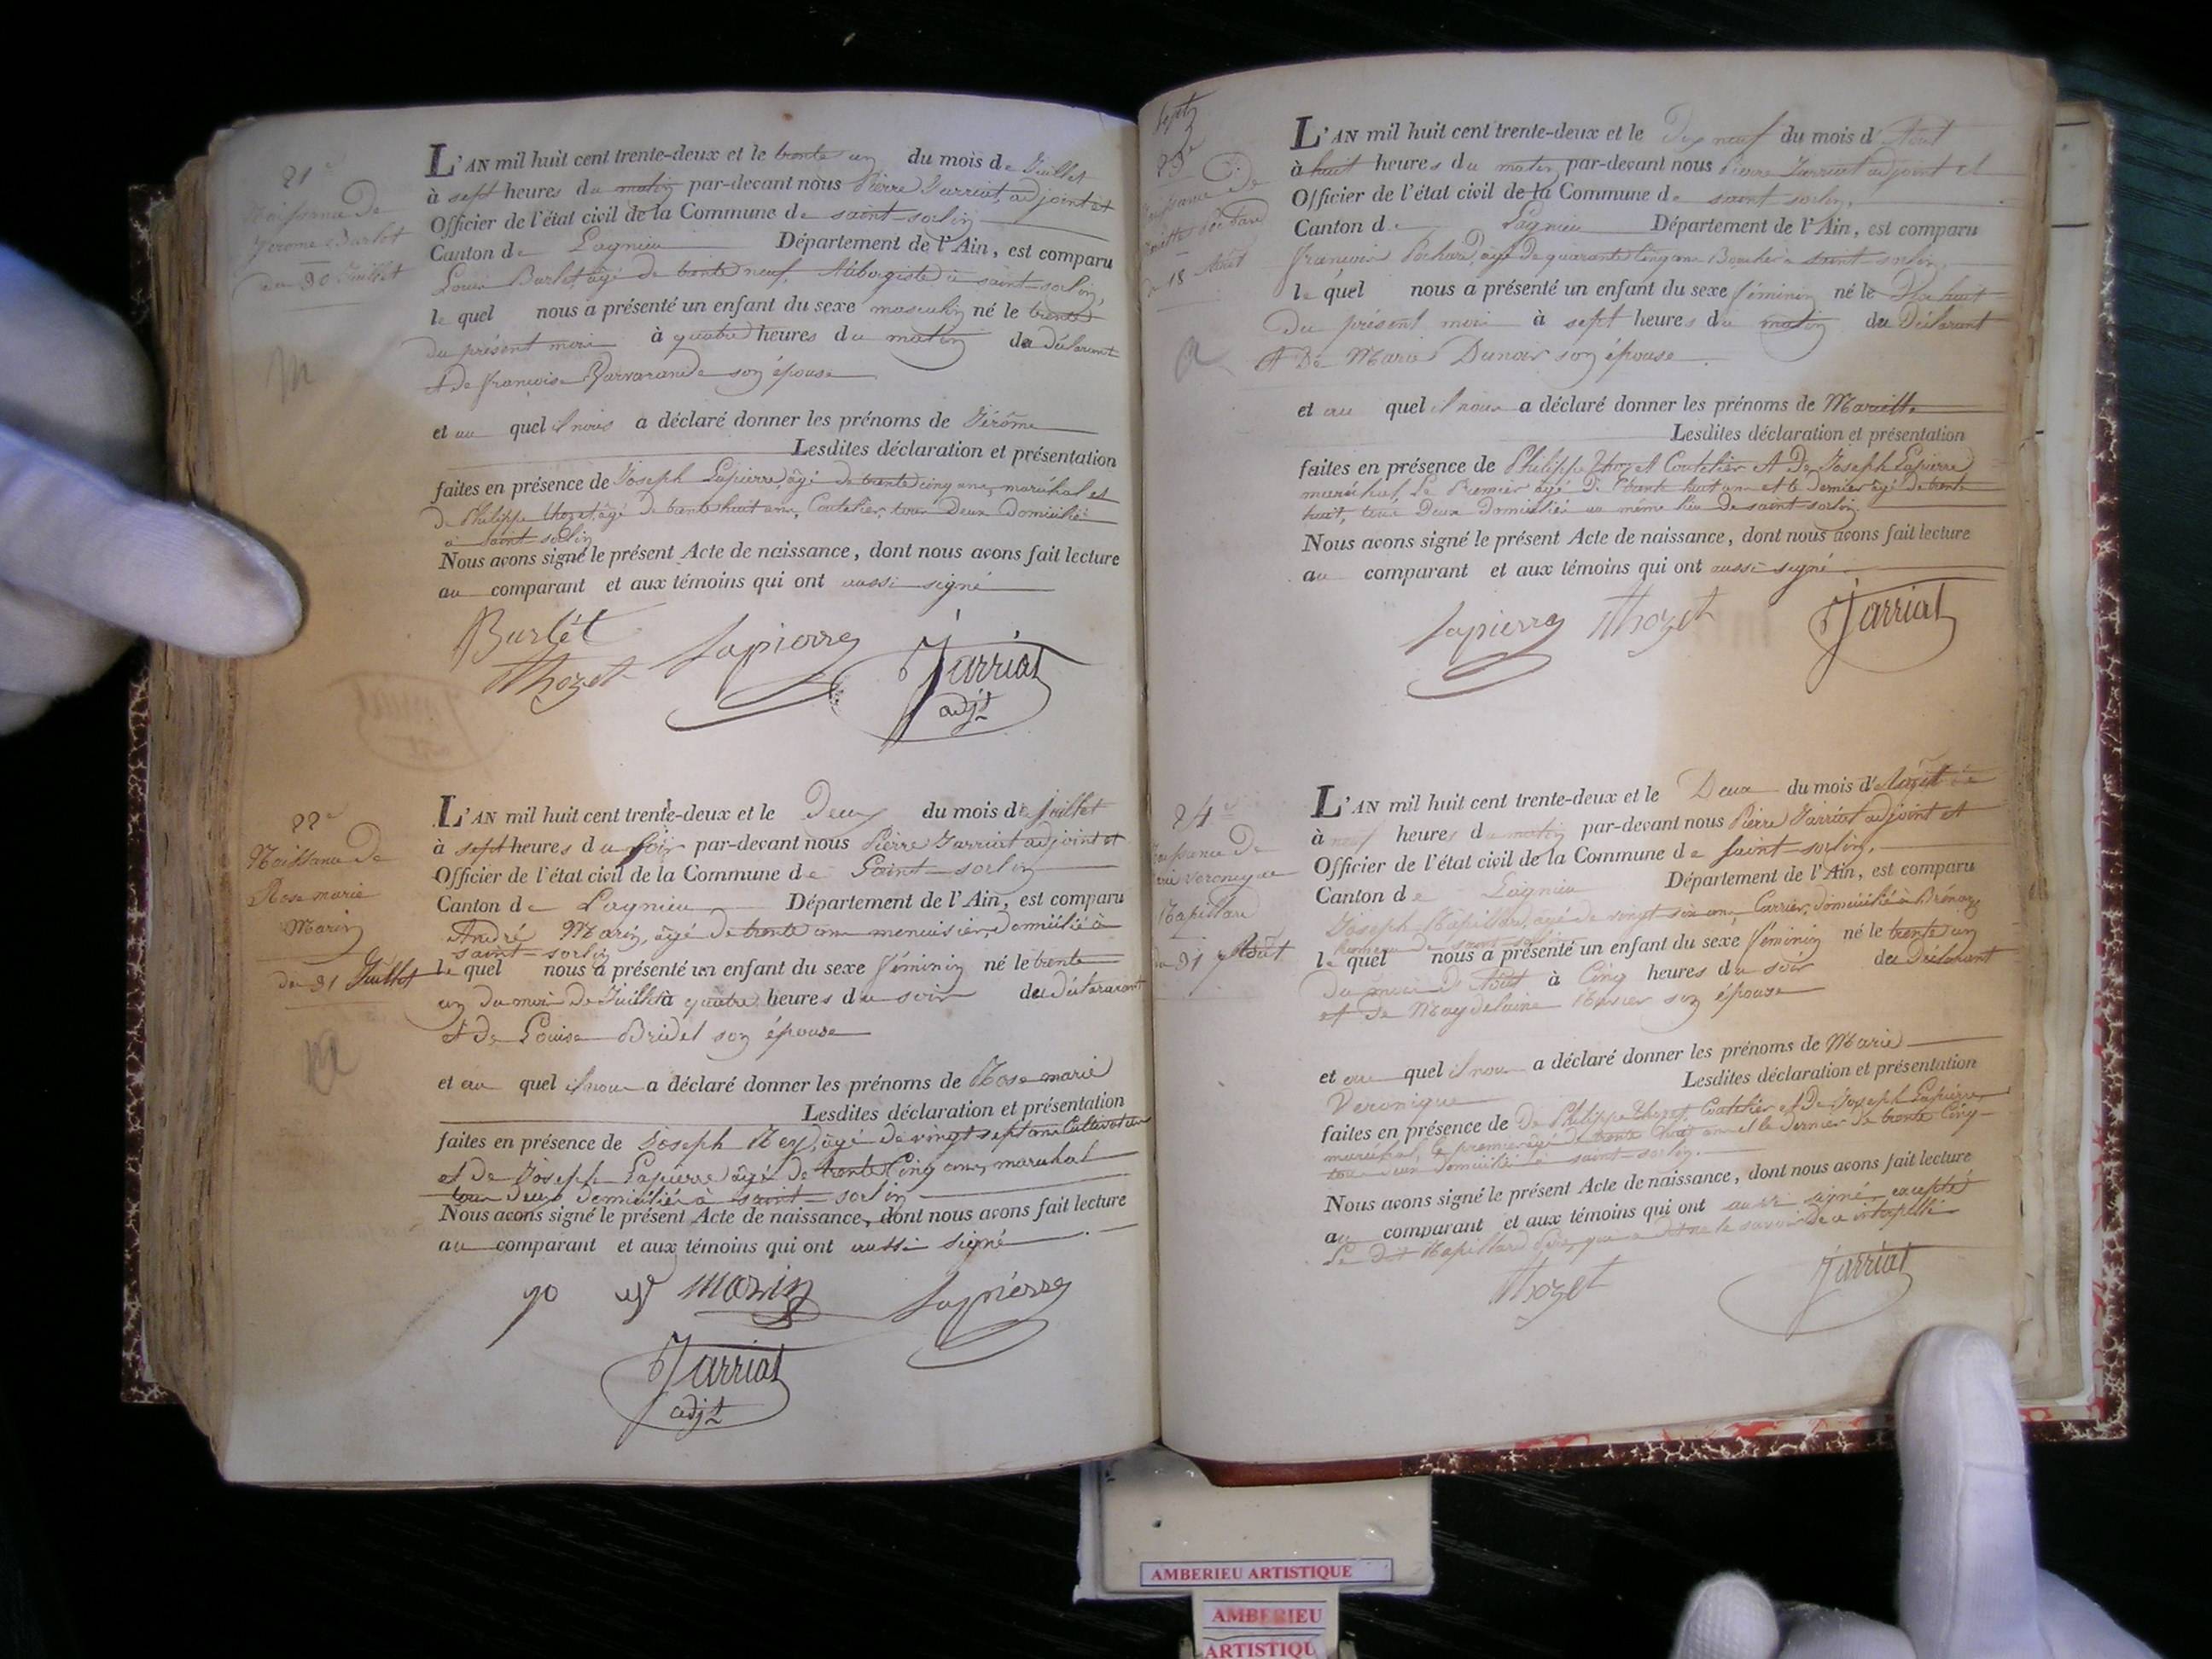 21e
Naissance de
Jerome Burlet
du 30 Juillet
M
L'AN mil huit cent trente-deux et le trente un du mois de Juillet
à sept heures du matin par-devant nous Pierre Jarriat, adjoint et
Officier de l'état civil de la Commune de saint-sorlin
Canton de Lagnieu Département de l'Ain, est comparu
Louis Burlet âgé de trente neuf, Aubergiste à saint-sorlin,
lequel nous a présenté un enfant du sexe masculin né le trente
du présent mois à quatre heures du matin du déclarant
et de Françoise son épouse
et au quel il nous a déclaré donner les prénoms de Jérôme
Lesdites déclaration et présentation
faites en présence de Joseph Lapierre, âgé de trente cinq ans, maréchal et
de Philippe thozet, âgé de trente huit ans, Coutelier, tous Deux Domicilié
à saint-sorlin
Nous avons signé le présent Acte de naissance, dont nous avons fait lecture
au comparant et aux témoins qui ont aussi signé
Burlét
Thozet Lapierre Jarriat
adjt
22e
Naissance de
Rose marie
Marin
du 31 Juillet
M
L'AN mil huit cent trente-deux et le Deux du mois de Juillet
à sept heures du soir par-devant nous Pierre Jarriat adjoint et
Officier de l'état civil de la Commune de Saint-sorlin
Canton de Lagnieu Département de l'Ain, est comparu
André Marin, âgé de trente ans menuisier, Domicilié à
saint-sorlin
lequel nous a présenté un enfant du sexe féminin né le trente
un du mois de Juillet à quatre heures du soir du déclarant
et de Louise Bridel son épouse
et au quel il nous a déclaré donner les prénoms de Rose marie
Lesdites déclaration et présentation
faites en présence de Joseph Rey, âgé de vingt sept ans Cultivateur
et de Joseph Lapierre âgé de trente Cinq ans, maréchal
tous deux domiciliés à saint-sorlin
Nous avons signé le présent Acte de naissance, dont nous avons fait lecture
au comparant et aux témoins qui ont aussi signé
Marin Lapierre
Jarriat
adjt
23e
Naissance De
du 18 Août
L'AN mil huit cent trente-deux et le Dix neuf du mois d'Août
à huit heures du matin par-devant nous Pierre Jarriat adjoint et
Officier de l'état civil de la Commune de saint sorlin,
Canton de Lagnieu Département de l'Ain, est comparu
François Pochard, âgé De quarante Cinq ans Boucher à saint-sorlin
lequel nous a présenté un enfant du sexe féminin né le Dix huit
du présent mois à sept heures du matin du Déclarant
et De Marie Dunoir son épouse
et au quel il nous a déclaré donner les prénoms de Mariette
Lesdites déclaration et présentation
faites en présence de Philippe Thozet Coutelier et De Joseph Lapierre
maréchal, Le Premier âgé De trente huit ans et le dernier âgé de trente
huit, tous Deux domiciliés au même lieu De saint-sorlin
Nous avons signé le présent Acte de naissance, dont nous avons fait lecture
au comparant et aux témoins qui ont aussi signé
Lapierre Thozet Jarriat
24e
Naissance De
Marie Veronique
Rapillard
du 31 Août
L'AN mil huit cent trente-deux et le Deux du mois d'Août
à neuf heures du matin par-devant nous Pierre Jarriat adjoint et
Officier de l'état civil de la Commune de saint-sorlin,
Canton de Lagnieu Département de l'Ain, est comparu
Joseph Rapillard, âgé de vingt six ans, Carrier, domicilié à
hameau de saint-sorlin
lequel nous a présenté un enfant du sexe féminin né le trente un
du mois D'Août à Cinq heures du soir du Déclarant
et de Magdelaine son épouse
et au quel il nous a déclaré donner les prénoms de Marie
Lesdites déclaration et présentation
Veronique
faites en présence de De Philippe thozet, Coutelier et De Joseph Lapierre
maréchal, le premier âgé de trente huit ans et le dernier de trente Cinq
tous deux domiciliés à saint-sorlin.
Nous avons signé le présent Acte de naissance, dont nous avons fait lecture
au comparant et aux témoins qui ont aussi signé excepté
Le Dit Rapillard Père, qui a dit ne le savoir De ce interpellé
Thozet Jarriat
AMBERIEU ARTISTIQUE
AMBERIEU
ARTISTIQU